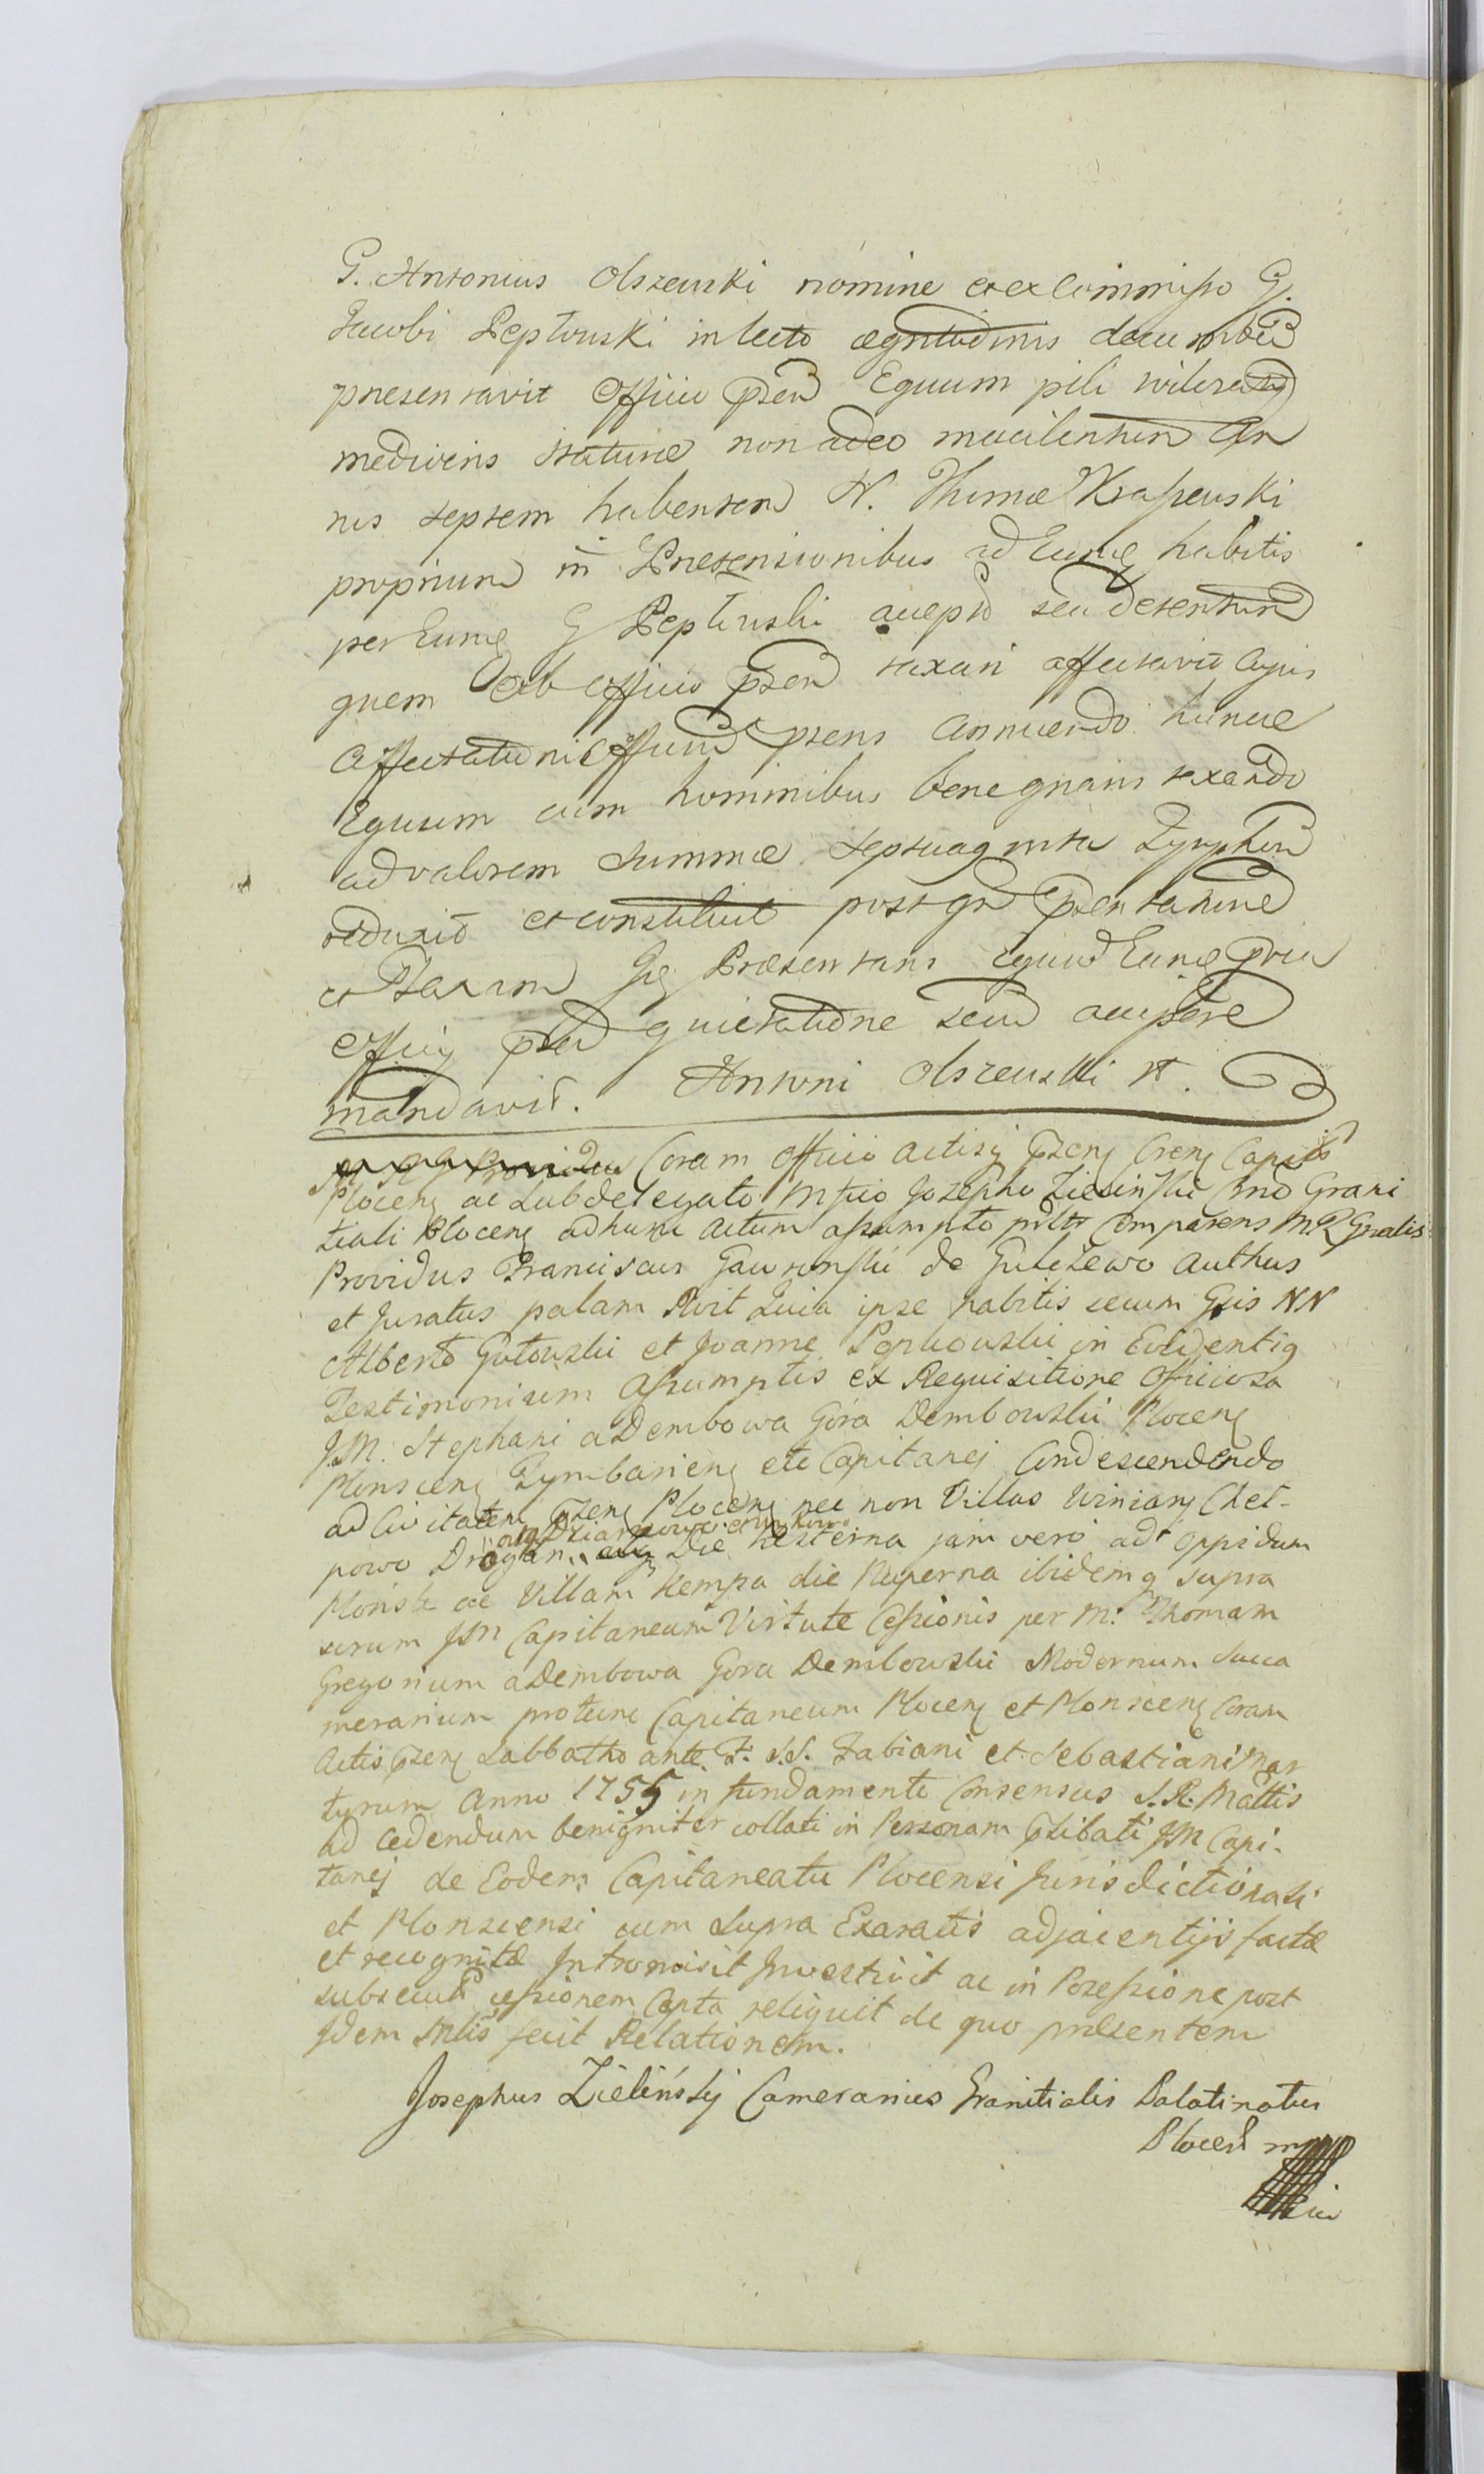 G. Antonius Olszewski nomine et ex Commisso G.
Jacobi Peptowski in lecto ægritudinis decumben
presentavit Officio psen Equum pili
mediocris staturæ non adeo macilentum An
nis septem habentem N. Thomæ Krassewski
proprium in Pretensionibus ad Eundꝫ habitis
per Eundꝫ G Peptowski accept seu detentum
quem ab Officio psen taxari affectavit Cujus
Affectationi Officium psens annuendo hunc
Equum cum hominibus bene gnaris taxando
ad valorem summæ septuaginta
reduxit et constituit post qm psentatione
et Taxam Præsentans Equum Eundꝫ
Officij psen quietatione secum accipere
mandavit. Antoni Olszewski
Coram Officio Actisq Pzenꝫ Crenꝫ Capitis
Plocenꝫ ac Subdelegato Mfico Josepho Zielinski Cmo Grani
tiali Plocenꝫ ad hunc Actum assumpto comparens M.R Gnralis
Providus Franciscus Gawronski de Gulczewo Authus
et Juratus palam Rvit Quia ipse habitis secum Gsis NN
Alberto Gutowski et Joanne in Evidentiq
Testimonium Assumptis ex Requisitione Officiosa
J.M. Stephani a Dembowa Góra Dembowski Plocenꝫ
Plonscenꝫ Zymbarienꝫ etc Capitanej Condescendendo
ad Civitatem Pzenꝫ Plocenꝫ nec non Villas Winiary Cheł-
powo Drogan Die hesterna jam vero ad Oppidum
Plońsk ac Villam Kempa die nuperna ibidemq supra
scrum JM Capitaneum Virtute Cessionis per M. Thomam
Gregorium a Dembowa Gora Dembowski Modernum Succa
merarium protunc Capitaneum Plocenꝫ et Plonscenꝫ Coram
Actis Pzenꝫ Sabbatho ante F. S.S. Fabiani et Sebastiani Mar
tyrum Anno 1755 in fundamento Consensus S.R. Mattis
ad cedendum benigniter collati in Personam Plibati JM Capi-
tanej de Eodem Capitaneatu Plocensi Jurisdictionali
et Plonscensi cum supra Exaratis adjacentijs factæ
et recognitæ Intromisit Investivit ac in Possessione post
subsecut cessionem Capta reliquit de quo præsentem
Idem fecit Relationem.
Josephus Zielińskj Camerarius Granitialis Palatinatus
Plocen mp